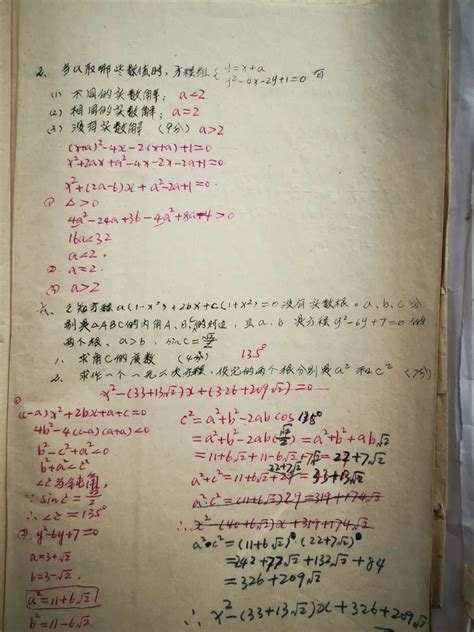 2. 当a取哪些数值时，方程组{y=x+a
y²-4x-2y+1=0 有
(1) 不同的实数解； a<2
(2) 相同的实数解； a=2
(3) 没有实数解 (9分) a>2
(x+a)²-4x-2(x+a)+1=0
x²+2ax+a²-4x-2x-2a+1=0
x²+(2a-6)x+a²-2a+1=0
(1) △>0
4a²-24a+36-4a²+8a-4>0
16a<32
a<2,
(2) a=2.
(3) a>2
六、已知方程a(1-x²)+2bx+c(1+x²)=0没有实数根。a、b、c分
别是△ABC的内角A、B、C的对边，且a、b 是方程y²-6y+7=0的
两个根，a>b，sinC=√2/2
1. 求角C的度数 (4分) 135°
2. 求作一个一元二次方程，使它的两个根分别是a²和c² (7分)
x²-(33+13√2)x+(326+209√2)=0
①
(c-a)x²+2bx+a+c=0
4b²-4(c-a)(a+c)<0
b²-c²+a²<0
b²+a²<c²
∠C为钝角
∵ sinC=√2/2
∴ ∠C=135°
②. y²-6y+7=0
a=3+√2
b=3-√2.
a²=11+6√2
b²=11-6√2.
c²=a²+b²-2ab cos135°
=a²+b²-2ab(√2/2)=a²+b²+ab√2
=11+6√2+11-6√2+7√2=22+7√2
22+7√2
a²+c²=11+6√2+29=33+13√2
a²·c²=(11+6√2)29=319+174√2
∴ x²-(40+6√2)x+319+174√2
a²·c²=(11+6√2)·(22+7√2)
=242+77√2+132√2+84
=326+209√2
∴ x²-(33+13√2)x+326+209√2